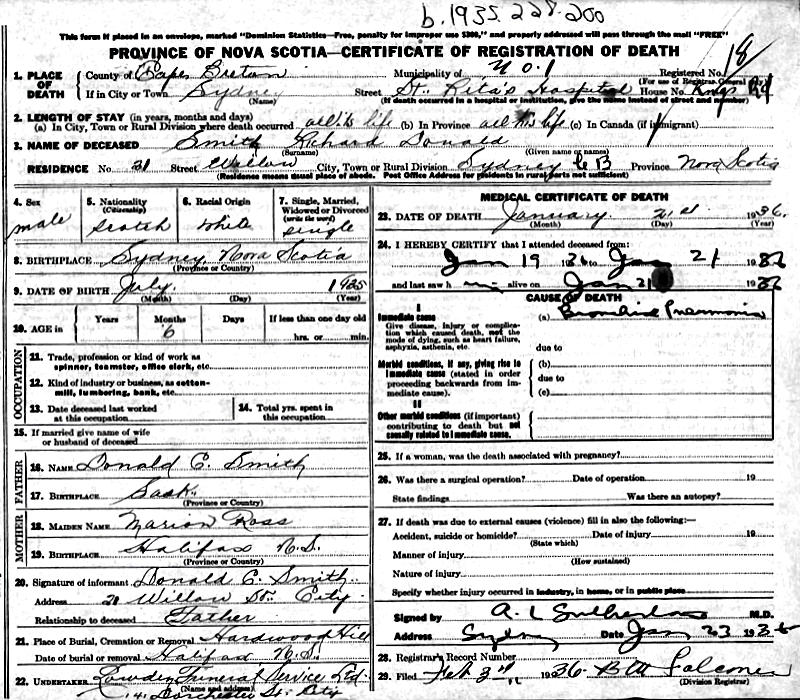 b. 1935. 228-200
This form if placed in an envelope, marked "Dominion Statistics—Free, penalty for improper use $300," and properly addressed will pass through the mail "FREE"
PROVINCE OF NOVA SCOTIA—CERTIFICATE OF REGISTRATION OF DEATH
18
1. PLACE OF DEATH
County of Cape Breton
Municipality of No. 1
Registered No.
(For use of Registrar General only)
If in City or Town Sydney
(Name)
Street St. Rita's Hospital House No. Kings Rd
(If death occurred in a hospital or institution, give the name instead of street and number)
2. LENGTH OF STAY (in years, months and days)
(a) In City, Town or Rural Division where death occurred all his life (b) In Province all his life (c) In Canada (if immigrant)
3. NAME OF DECEASED Smith Richard Donald
(Surname) (Given name or names)
RESIDENCE No. 21 Street Willow City, Town or Rural Division Sydney C B Province Nova Scotia
(Residence means usual place of abode. Post Office Address for residents in rural parts not sufficient)
4. Sex
male
5. Nationality
(Citizenship)
Scotch
6. Racial Origin
White
7. Single, Married, Widowed or Divorced
(write the word)
single
8. BIRTHPLACE Sydney, Nova Scotia
(Province or Country)
9. DATE OF BIRTH July. 1935
(Month) (Day) (Year)
10. AGE in
Years Months Days If less than one day old
6
hrs. or min.
OCCUPATION
11. Trade, profession or kind of work as spinner, teamster, office clerk, etc.
12. Kind of industry or business, as cotton-mill, lumbering, bank, etc.
13. Date deceased last worked at this occupation
14. Total yrs. spent in this occupation
15. If married give name of wife or husband of deceased
FATHER
16. NAME Donald C. Smith
17. BIRTHPLACE Sask.
(Province or Country)
MOTHER
18. MAIDEN NAME Marion Ross
19. BIRTHPLACE Halifax N.S.
(Province or Country)
20. Signature of informant Donald C. Smith.
Address 21 Willow St. City.
Relationship to deceased Father
21. Place of Burial, Cremation or Removal Hardwood Hill
Date of burial or removal Halifax N.S.
22. UNDERTAKER Funeral Service Ltd.
(Name and address)
Dorchester St. City
MEDICAL CERTIFICATE OF DEATH
23. DATE OF DEATH January. 21st 1936.
(Month) (Day) (Year)
24. I HEREBY CERTIFY that I attended deceased from:
Jan 19 1936 to Jan 21 1936
and last saw h im alive on Jan 21 1936
CAUSE OF DEATH
I
Immediate cause
Give disease, injury or complication which caused death, not the mode of dying, such as heart failure, asphyxia, asthenia, etc.
(a) Bronchial Pneumonia
due to
Morbid conditions, if any, giving rise to immediate cause (stated in order proceeding backwards from immediate cause).
(b)
due to
(c)
II
Other morbid conditions (if important) contributing to death but not causally related to immediate cause.
25. If a woman, was the death associated with pregnancy?
26. Was there a surgical operation? Date of operation 19
State findings Was there an autopsy?
27. If death was due to external causes (violence) fill in also the following:—
Accident, suicide or homicide? Date of injury 19
(State which)
Manner of injury
(How sustained)
Nature of injury
Specify whether injury occurred in industry, in home, or in public place
Signed by A. L Sutherland M.D.
Address Sydney Date Jan 23 1936
28. Registrar's Record Number
29. Filed Feb 3rd 1936 Falconer
(Division Registrar)